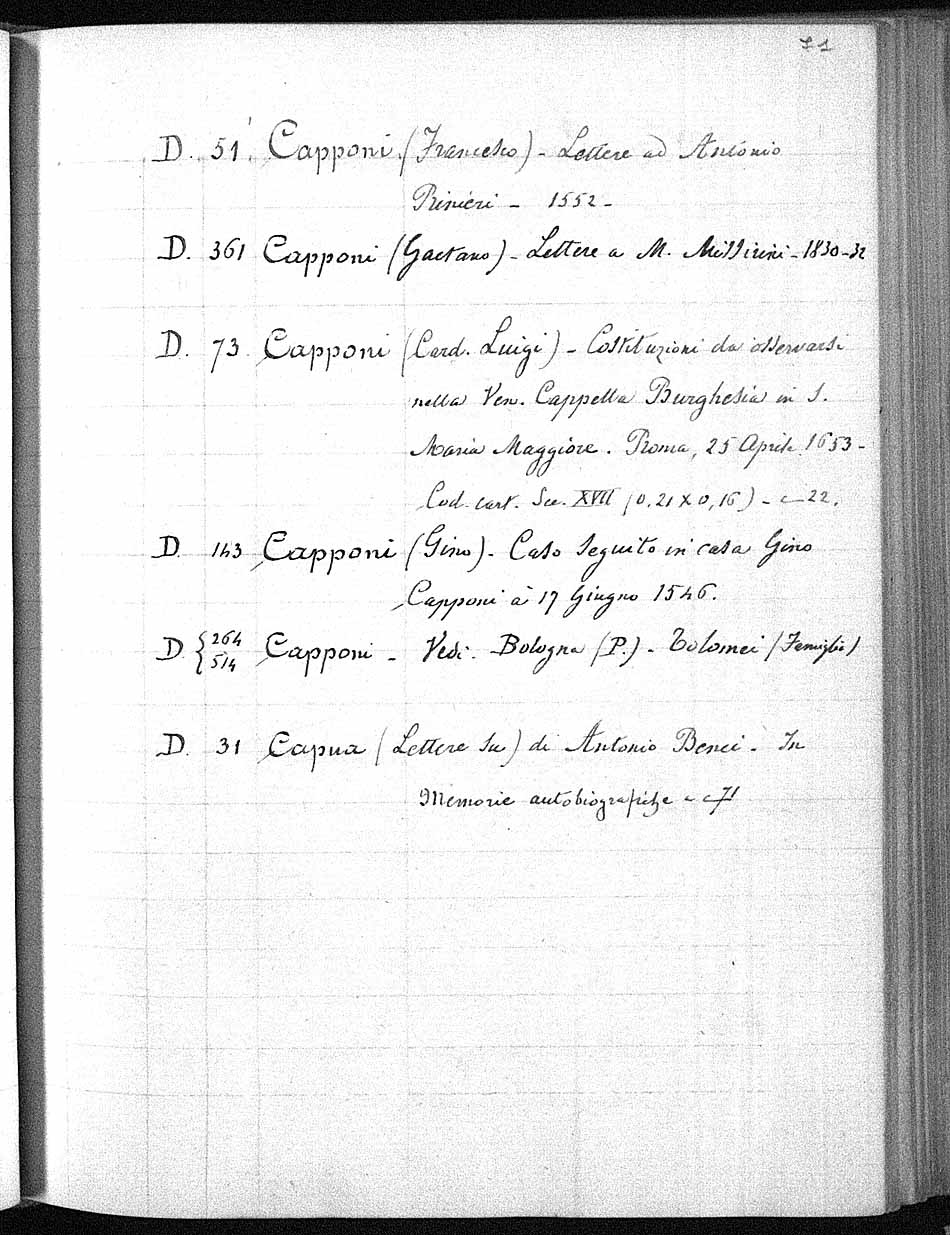 71
D. 51 Capponi (Francesco) - Lettere ad Antonio
Rinieri - 1552 -
D. 361 Capponi (Gaetano) - Lettere a M. Missirini - 1830-32
D. 73 Capponi (Card. Luigi) - Costituzioni da osservarsi
nella Ven. Cappella Burghesia in S.
Maria Maggiore. Roma, 25 Aprile 1653 -
Cod. cart. Sec. XVII (0,21 X 0,16) - c 22.
D. 143 Capponi (Gino) - Caso seguito in casa Gino
Capponi a' 17 Giugno 1546.
D { 264 Capponi - Vedi - Bologna (P.) - Tolomei (Famiglia)
514
D. 31 Capua (Lettere su) di Antonio Benci - In
Memorie autobiografiche a c 71